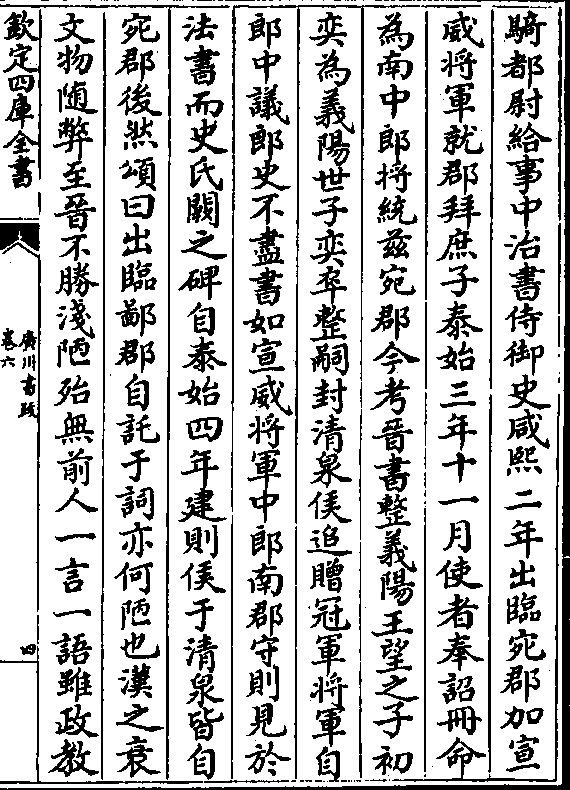 騎都尉給事中治書侍御史咸熙二年出臨宛郡加宣
威將軍就郡拜庶子泰始三年十一月使者奉詔冊命
為南中郎將統兹宛郡今考晉書整義陽王望之子初
奕為義陽世子奕卒整嗣封清泉侯追贈冠軍將軍自
郎中議郎史不盡書如宣威將軍中郎南郡守則見於
法書而史氏闕之碑自泰始四年建則侯于清泉皆自
宛郡後然頌曰出臨鄙郡自託于詞亦何陋也漢之衰
文物随弊至晉不勝淺陋殆無前人一言一語雖政教
欽定四庫全書
廣川書跋
卷六
四